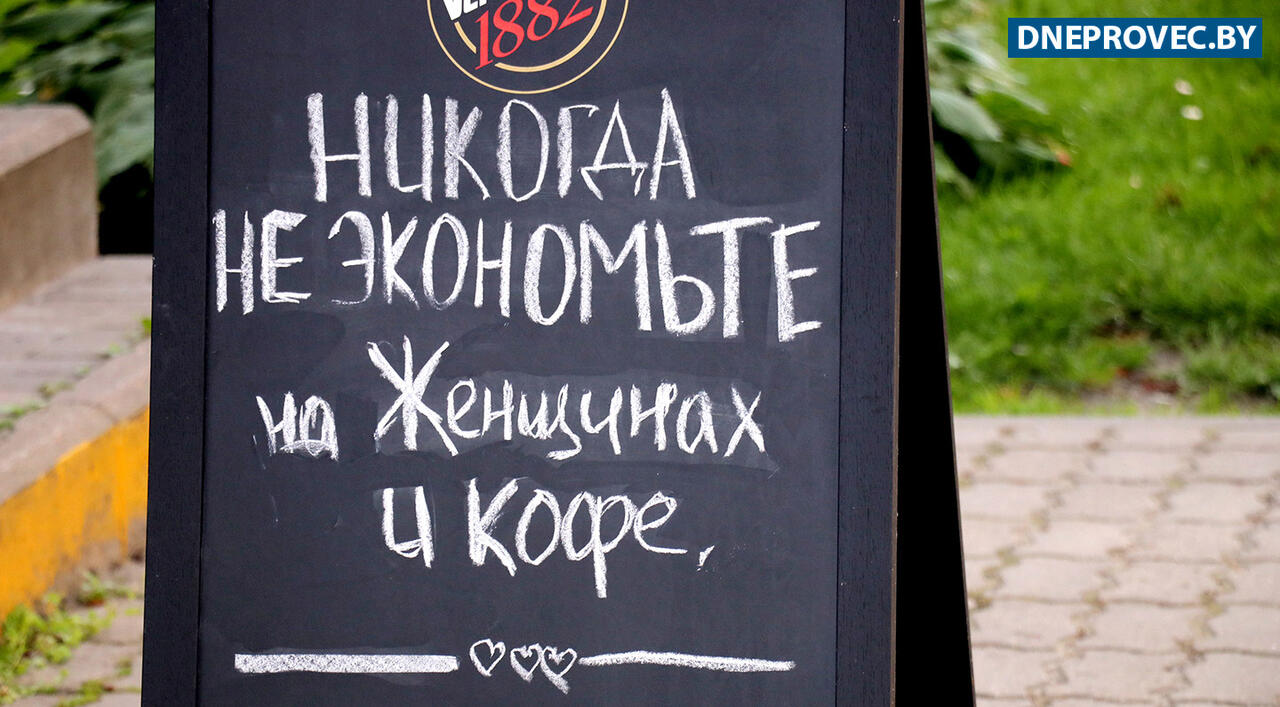 DNEPROVEC.BY
1882
НИКОГДА
НЕ ЭКОНОМЬТЕ
на Женщинах
и кофе.